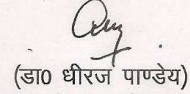 (डा0 धीरज पाण्डेय)